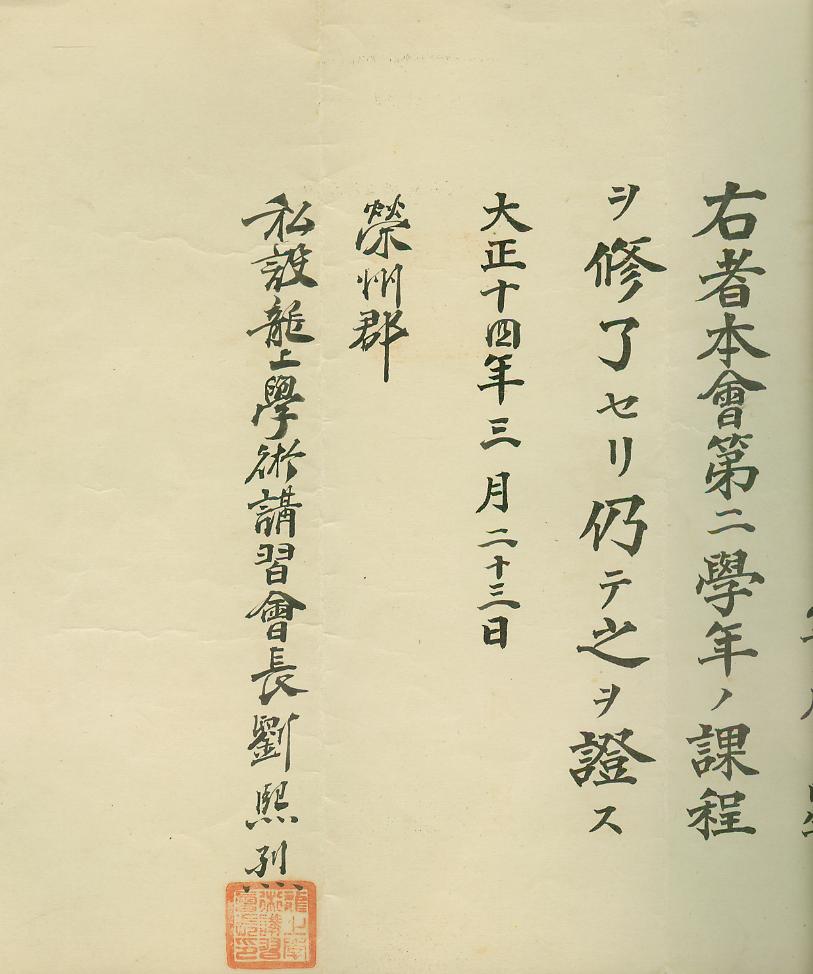 右者本會第二學年ノ課程
ヲ修了セリ仍テ之ヲ證ス
大正十四年三月二十三日
榮州郡
私設龍上學術講習會長劉熙烈